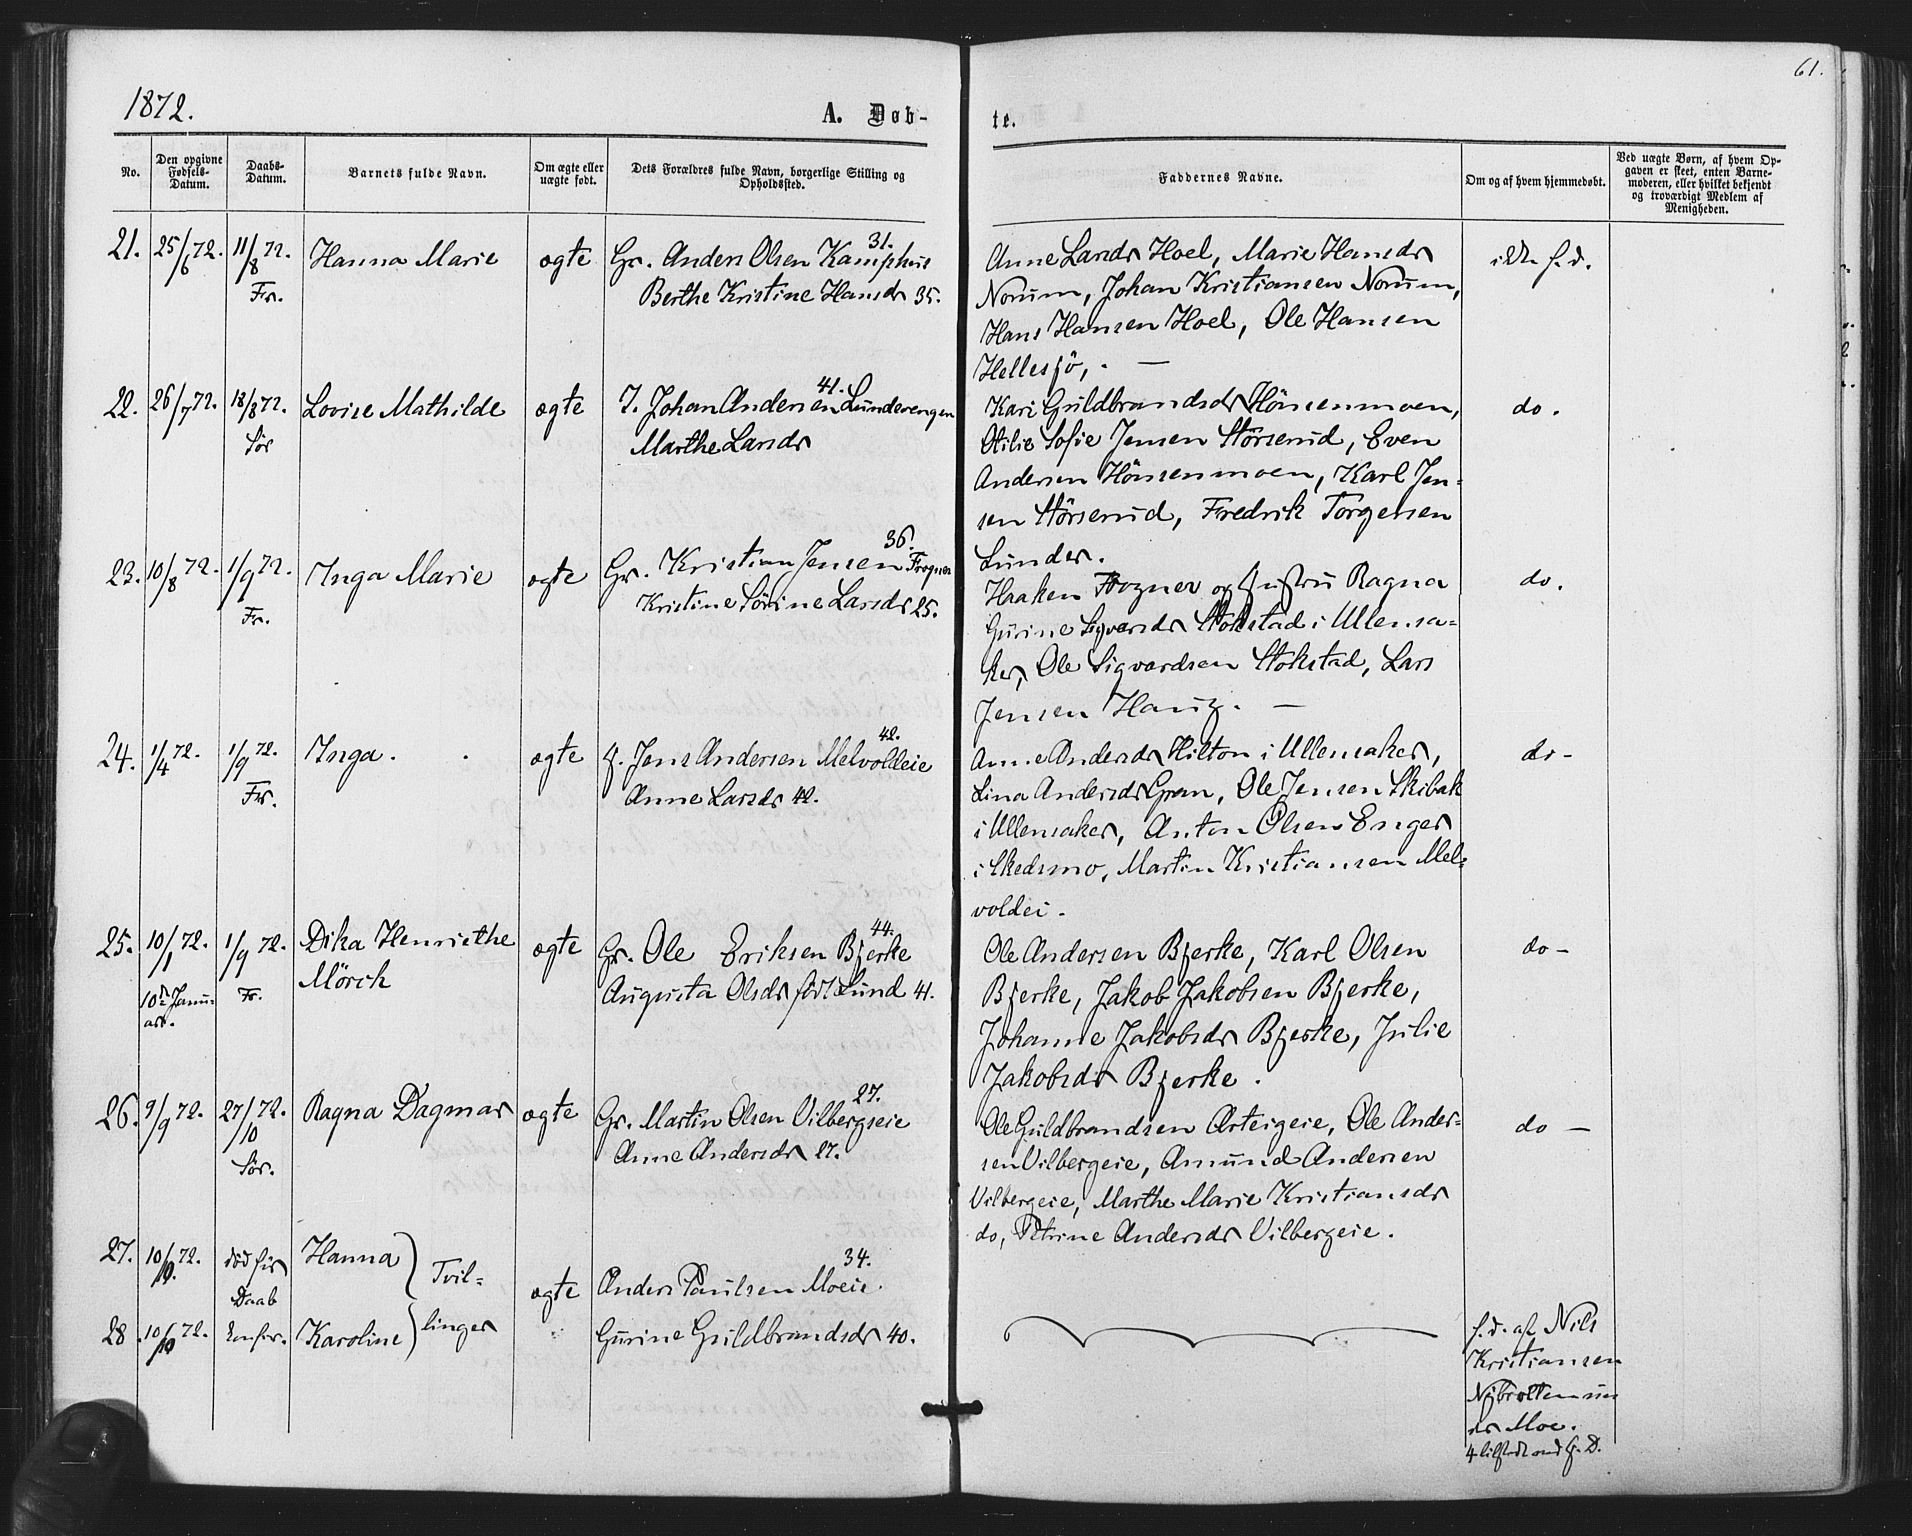 1872.
A. Døb-
te.
61.
No.
Den opgivne Fødsels-Datum.
Daabs-Datum.
Barnets fulde Navn.
Om ægte eller uægte født.
Dets Forældres fulde Navn, borgerlige Stilling og Opholdssted.
Faddernes Navne.
Om og af hvem hjemmedøbt.
Ved uægte Børn, af hvem Op-
gaven er skeet, enten Barne-
moderen, eller hvilket bekjendt
og troværdigt Medlem af
Menigheden.
21. 25/6 72. 11/8 72. Fr. Hanna Marie ægte Gr. Anders Olsen Kamphus 31.
Berthe Kristine Hansdr 35.
Anne Larsdr Hoel, Marie Hansdr
Norum, Johan Kristiansen Norum,
Hans Hansen Hoel, Ole Hansen
Hellesjö, . —
ikke h. d.
22. 26/7 72. 18/8 72. Sör Lovise Mathilde ægte I. Johan Andersen Lunderengen 41.
Marthe Larsdr
Kari Guldbrandsdr Hönsenmoen,
Otilie Sofie Jensen Störserud, Even
Andersen Hönsenmoen, Karl Jen-
sen Störserud, Fredrik Torgersen
Lunder.
do.
23. 10/8 72. 1/9 72. Fr. Inga Marie ægte Gr. Kristian Jensen Frogner 36.
Kristine Sörine Larsdr 25.
Haaken Frogner og Hustru Ragna
Gurine Sigvardsdr Stokstad i Ullensa-
ker, Ole Sigvardsen Stokstad, Lars
Jensen Haug. —
do.
24. 1/4 72. 1/9 72. Fr. Inga. ægte H. Jens Andersen Melvoldeie 42.
Anne Larsdr 42.
Anne Andersdr Hilton i Ullensaker,
Lina Andersdr Gran, Ole Jensen Skibak
i Ullensaker, Anton Olsen Enger
i Skedsmo, Martin Kristiansen Mel-
voldei.
do -
25. 10/1 72. 10de Janu-
ar. 1/9 72. Fr. Dika Henriethe
Mörch ægte Gr. Ole Eriksen Bjerke 44.
Augusta Olsdr födt Lund 41.
Ole Andersen Bjerke, Karl Olsen
Bjerke, Jakob Jakobsen Bjerke,
Johanne Jakobsdr Bjerke, Julie
Jakobsdr Bjerke.
do -
26. 9/9 72. 27/10 72. Sör. Ragna Dagmar ægte Gr. Martin Olsen Vilbergseie 27.
Anne Andersdr 27.
Ole Guldbrandsen Arteigeie, Ole Ander-
sen Vilbergeie, Amund Andersen
Vilbergeie, Marthe Marie Kristiansdr
do, Petrine Andersdr Vilbergeie.
do —
27. 10/10 72. död för
Daab Hanna
Tvil-
linger
ægte Anders Paulsen Moeie. 34.
28. 10/10 72. Karoline
Gurine Guldbrandsdr 40.
h. d. af Nils
Kristiansen
Nybrotten un
der Moe.